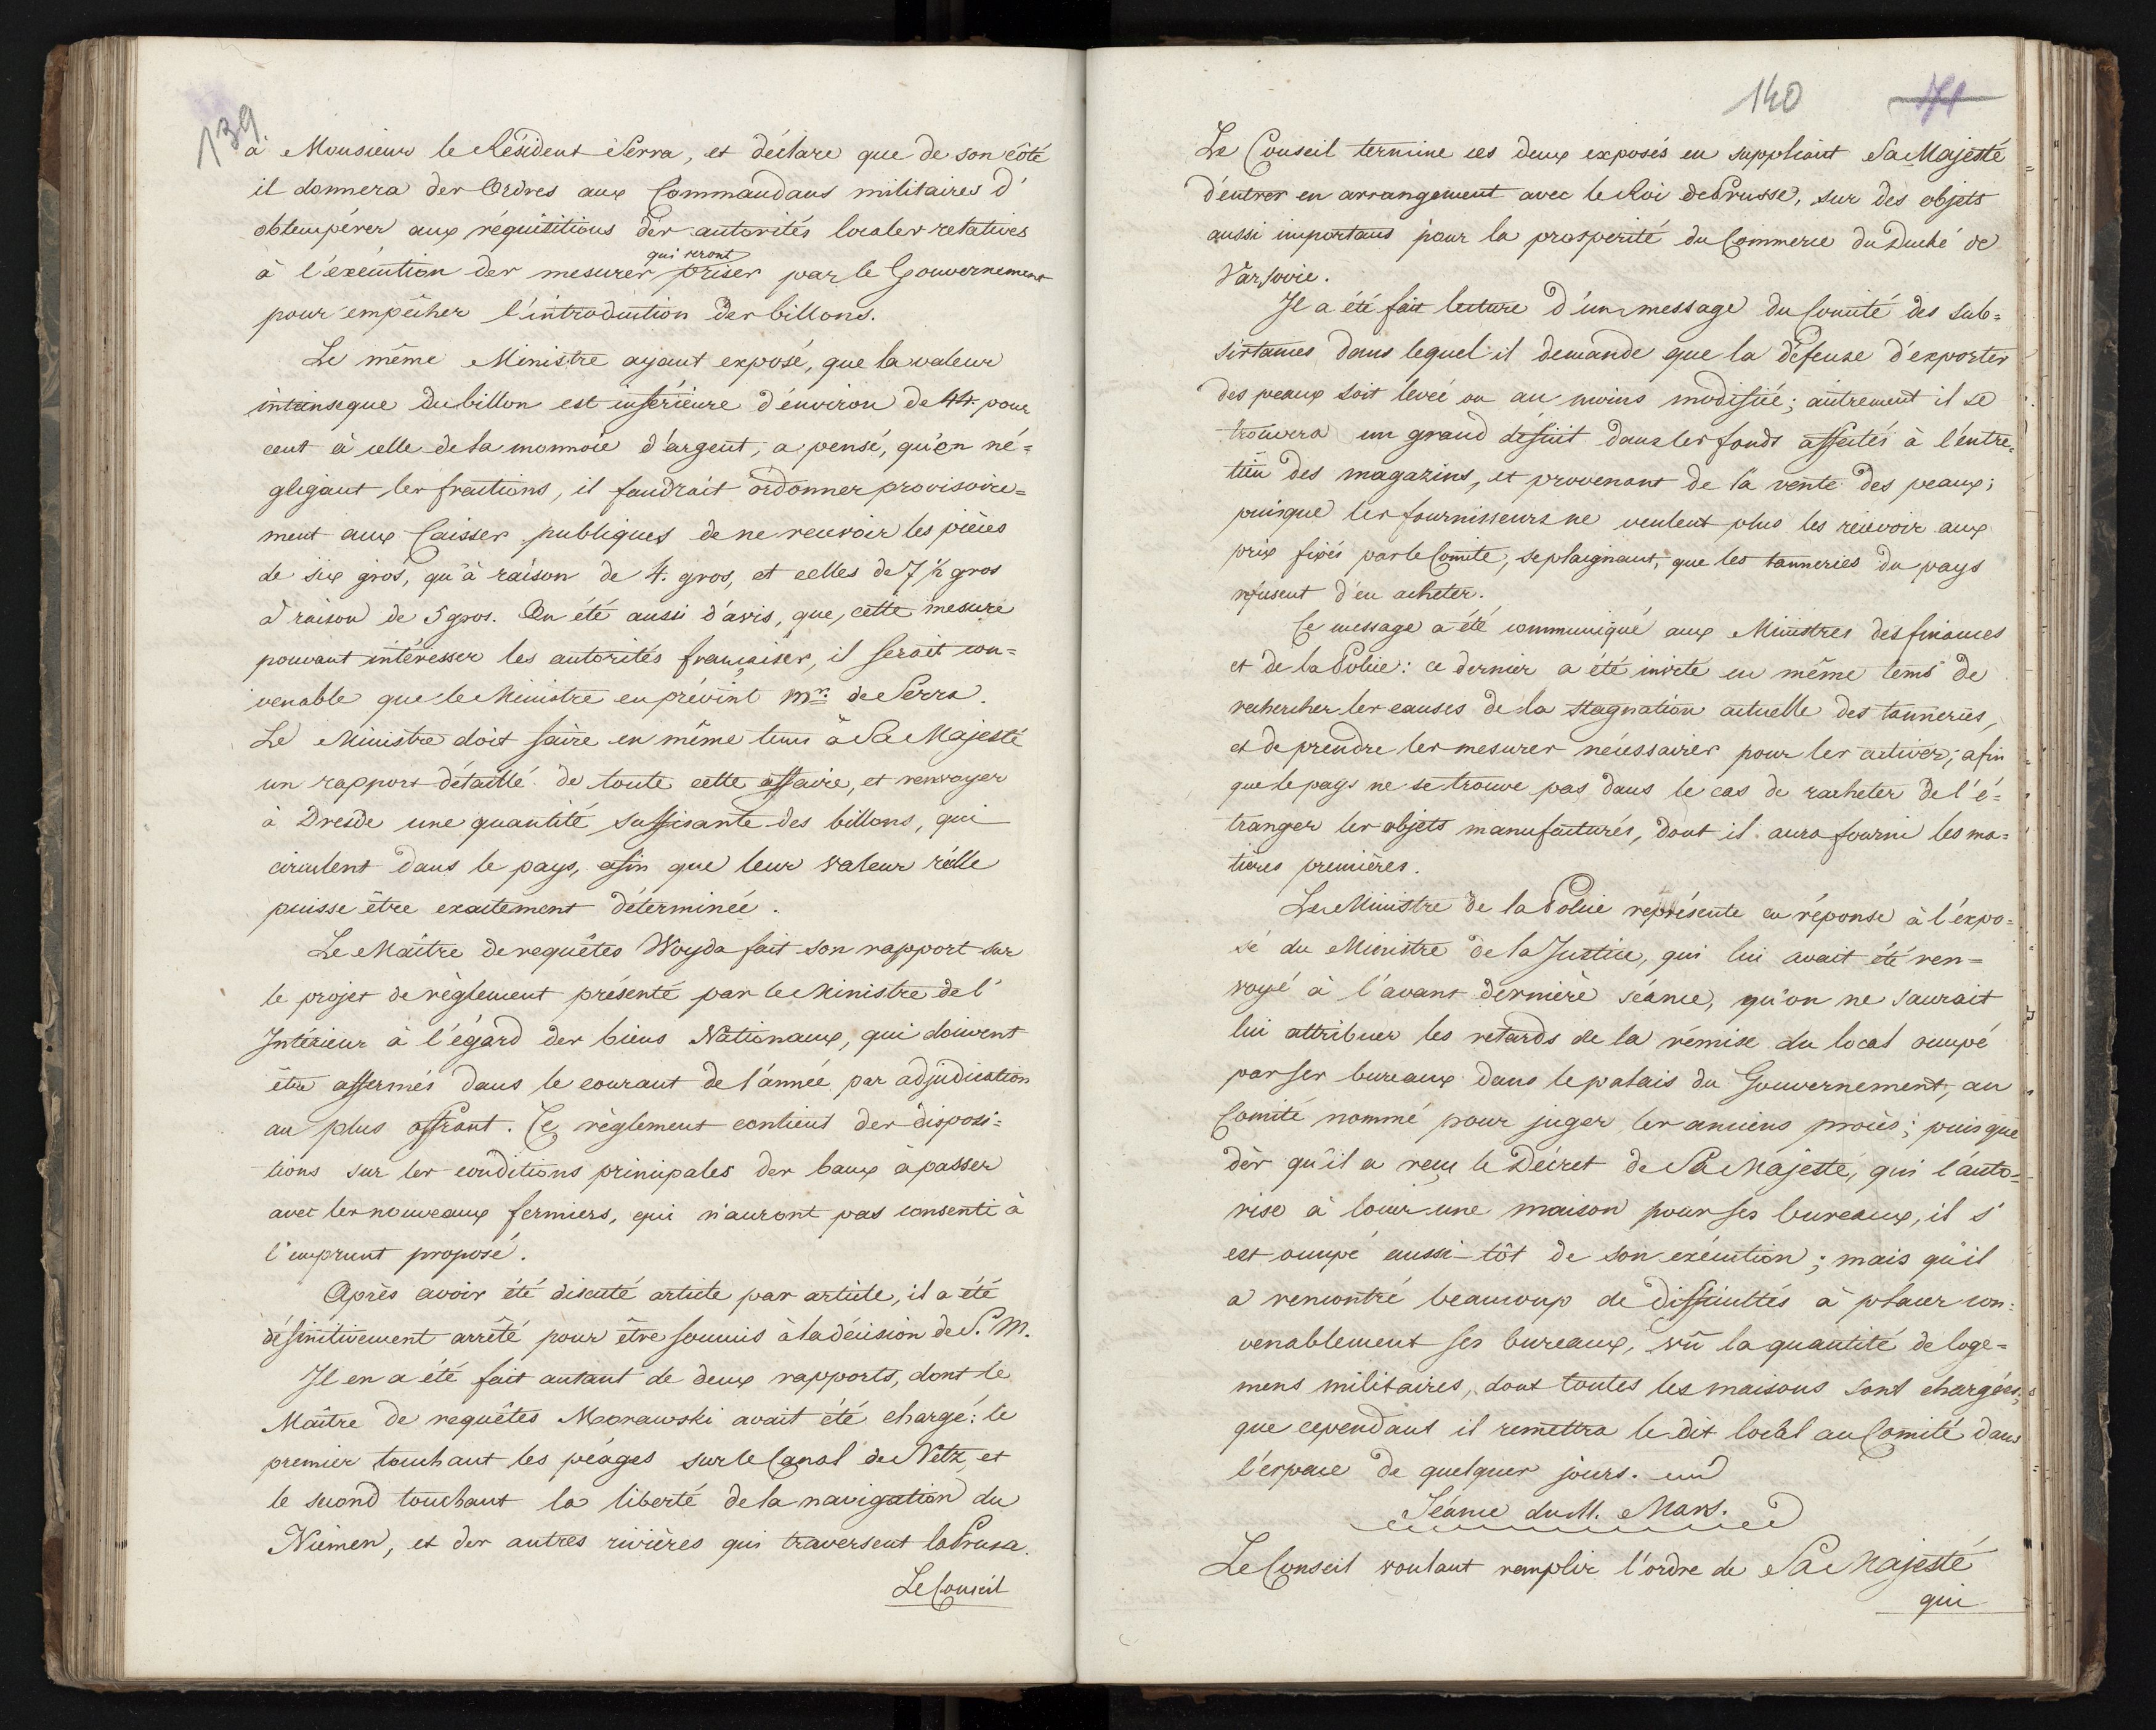 139.
à Monsieur le Résident Serra, et déclare que de son côté
il donnera des Ordres aux Commandans militaires d'
obtempérer aux réquisitions des autorités locales relatives
qui seront
à l'exécution des mesures prises par le Gouvernement
pour empêcher l'introduction des billons.
Le même Ministre ayant exposé, que la valeur
intrinseque du billon est inférieure d'environ de 44 pour
cent à celle de la monnoie d'argent, a pensé, qu'en né=
gligeant les fractions, il faudrait ordonner provisoire=
ment aux Caisses publiques de ne recevoir les pièces
de six gros, qu'à raison de 4. gros, et celles de 7 1/2 gros
à raison de 5 gros. On été aussi d'avis, que, cette mesure
pouvant intéresser les autorités françaises, il serait con=
venable que le Ministre en prévint Mr. de Serra.
Le Ministre doit faire en même tems à Sa Majesté
un rapport détaillé de toute cette affaire, et renvoyer
à Dresde une quantité suffisante des billons, qui
circulent dans le pays, afin que leur valeur réelle
puisse être exactement déterminée.
Le Maître de requêtes Woyda fait son rapport sur
le projet de règlement présenté par le Ministre de l'
Intérieur à l'égard des biens Nationaux, qui doivent
être affermés dans le courant de l'année par adjudication
au plus offrant. Ce règlement contient des disposi=
tions sur les conditions principales des baux à passer
avec les nouveaux fermiers, qui n'auront pas consenti à
l'emprunt proposé.
Après avoir été discuté article par article, il a été
définitivement arrêté pour être soumis à la décision de S. M.
Il en a été fait autant de deux rapports, dont le
Maître de requêtes Morawski avait été chargé: le
premier touchant les péages sur le Canal de Netz, et
le second touchant la liberté de la navigation du
Niémen, et des autres rivières qui traversent la Prusse.
Le Conseil
140
Le Conseil termine ces deux exposés en suppliant Sa Majesté
d'entrer en arrangement avec le Roi de Prusse, sur des objets
aussi importans pour la prosperité du Commerce du Duché de
Varsovie.
Il a été fait lecture d'un message du Comité des sub=
sistances dans lequel il demande que la défense d'exporter
des peaux soit levée ou au moins modifiée; autrement il se
trouvera un grand déficit dans les fonds affectés à l'entre=
tien des magazins, et provenant de la vente des peaux;
puisque les fournisseurs ne veulent plus les recevoir aux
prix fixés par le Comité, se plaignant, que les tanneries du pays
refusent d'en acheter.
Ce message a été communiqué aux Ministres des finances
et de la Police: ce dernier a été invité en même tems de
rechercher les causes de la stagnation actuelle des tanneries,
et de prendre les mesures nécessaires pour les activer; afin
que le pays ne se trouve pas dans le cas de racheter de l'é=
tranger les objets manufacturés, dont il aura fourni les ma=
tières premières.
Le Ministre de la Police représente en réponse à l'expo=
sé du Ministre de la Justice, qui lui avait été ren=
voyé à l'avant dernière séance, qu'on ne saurait
lui attribuer les retards de la rémise du local occupé
par ses bureaux dans le palais du Gouvernement, au
Comité nommé pour juger les anciens procès; puisque
dès qu'il a reçu le Décret de Sa Majesté, qui l'auto=
rise à louer une maison pour ses bureaux, il s'
est occupé aussi-tôt de son exécution; mais qu'il
a rencontré beaucoup de difficultés à placer con=
venablement ses bureaux, vû la quantité de loge=
mens militaires, dont toutes les maisons sont chargées,
que cependant il remettra le dit local au Comité dans
l'espace de quelques jours.
Séance du 11. Mars.
Le Conseil voulant remplir l'ordre de Sa Majesté
qui